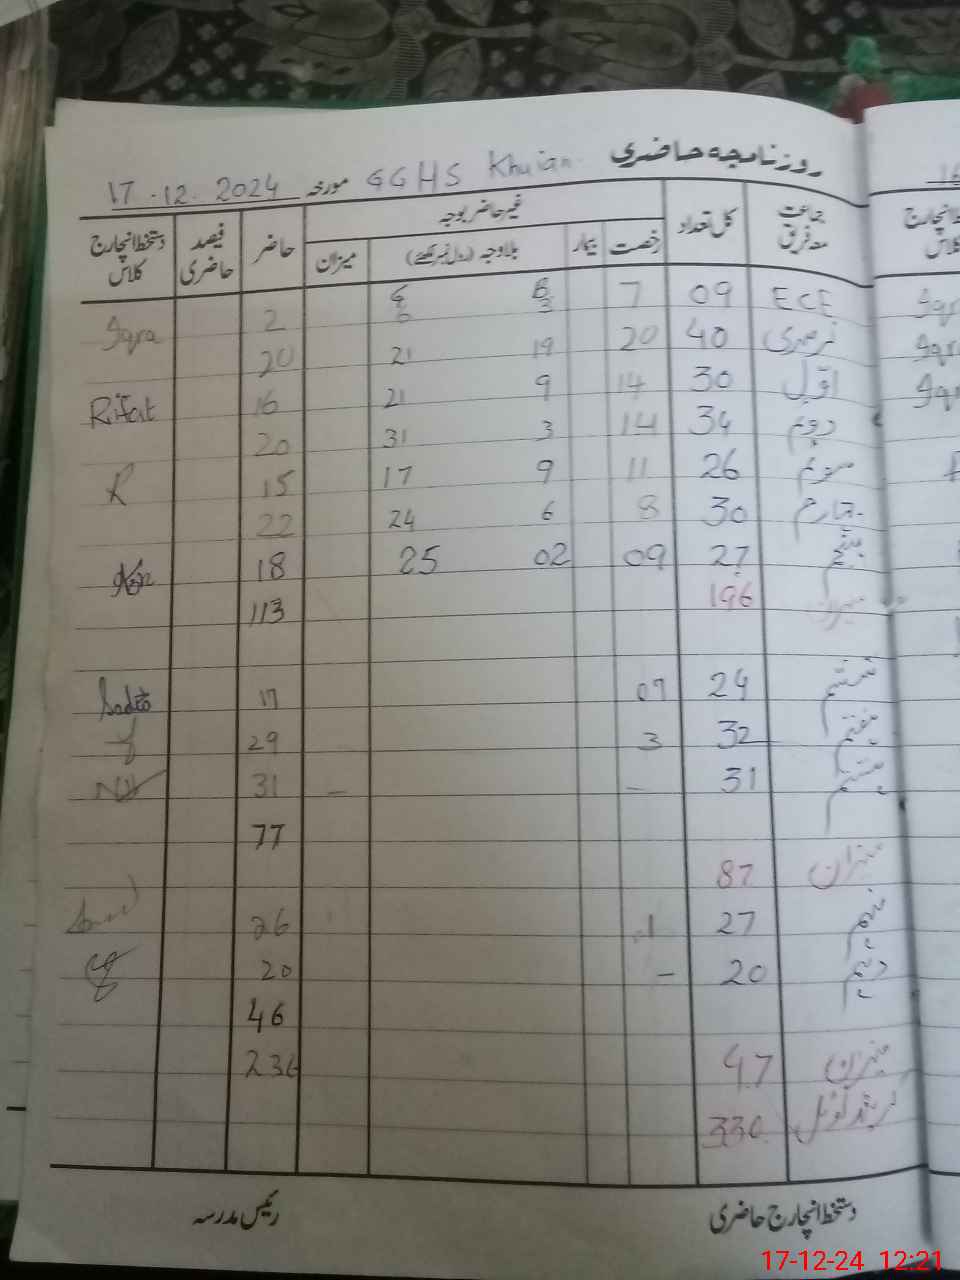 روزنامچہ حاضری
GGHS Khuian مورخہ 17.12.2024
جماعت معہ فریق کل تعداد غیر حاضر بوجہ حاضر فیصد حاضری دستخط انچارج کلاس
رخصت بیمار بلاوجہ (رول نمبر لکھئے) میزان
ECE 09 7 B 3 G 6 2 Iqra
نرسری 40 20 19 21 20
اول 30 14 9 21 16 Rifat
دوم 34 14 3 31 20
سوئم 26 11 9 17 15 R
چہارم 30 8 6 24 22
پنجم 27 09 02 25 18
میزان 196 113
ششم 24 07 17
ہفتم 32 3 29
ہشتم 31 – – 31
77
میزان 87
نہم 27 1 26
دہم 20 – 20
46
میزان 47 236
گرینڈ ٹوٹل 330
دستخط انچارج حاضری رئیس مدرسہ
16
انچارج
کلاس
Iqr
Iqr
Iqr
17-12-24 12:21